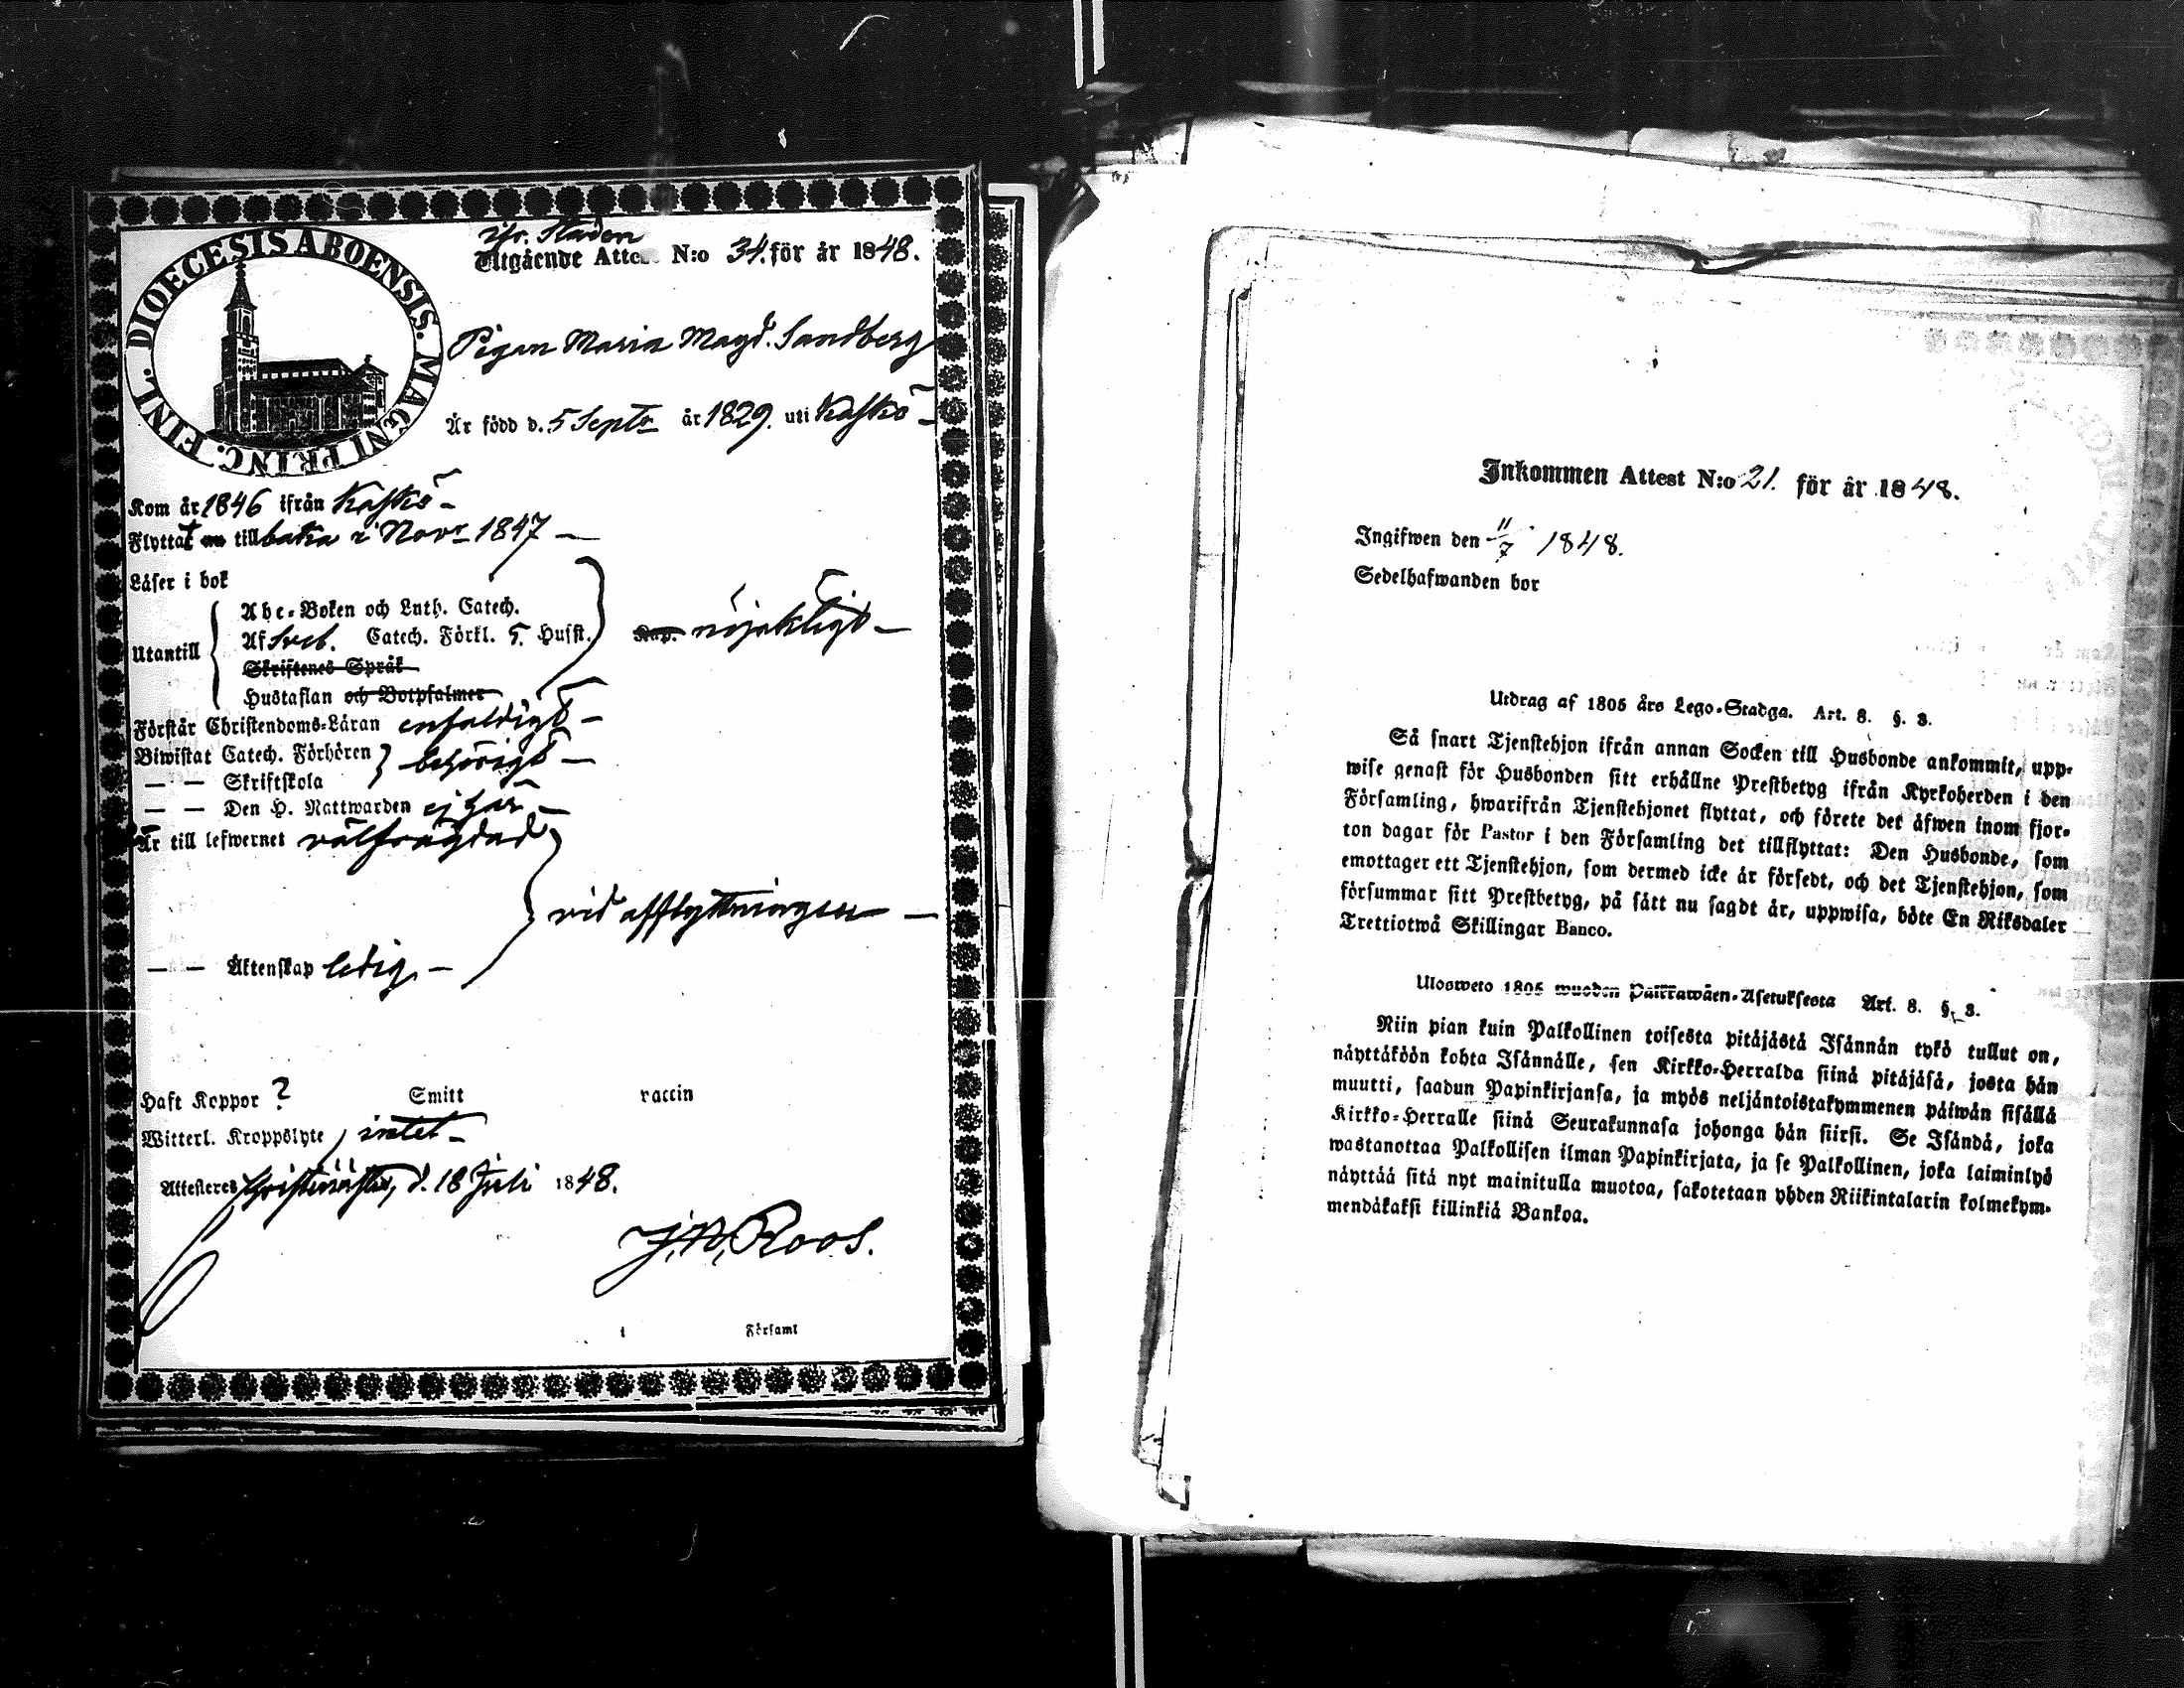 DIOECESIS ABOENSIS. MAGNI PRINC. FINL.
fr. Staden
Utgående Attest N:o 34. för år 1848.
Pigan Maria Magd. Sandberg
Är född d. 5 Septr år 1829. uti Kaskö
Kom år 1846 ifrån Kaskö
Flyttat nu tillbaka i Novr 1847
Läser i bok
Abc-Boken och Luth. Catech.
Utantill Af Sveb. Catech. Förkl. 5. Husst. nöjaktigt
Skriftenes Språk
Hustaflan och Botpsalmer
Förstår Christendoms-Läran enfaldigt
Biwistat Catech. Förhören behörigt
— — Skriftskola
— — Den H. Nattwarden ej här
Är till lefwernet välfrägdad
vid afflyttningen
— — Äktenskap ledig
Haft Koppor ? Smitt vaccin
Witterl. Kroppslyte intet
Attesteres Christinæstad, d. 18 Juli 1848.
J. N. Roos.
i Församl
Inkommen Attest N:o 21. för år 1848.
Ingifwen den 11/7 1848.
Sedelhafwanden bor
Utdrag af 1805 års Lego-Stadga. Art. 8. §. 3.
Så snart Tjenstehjon ifrån annan Socken till Husbonde ankommit, upp-
wise genast för Husbonden sitt erhållne Prestbetyg ifrån Kyrkoherden i den
Församling, hwarifrån Tjenstehjonet flyttat, och förete det äfwen inom fjor-
ton dagar för Pastor i den Församling det tillflyttat: Den Husbonde, som
emottager ett Tjenstehjon, som dermed icke är försedt, och det Tjenstehjon, som
försummar sitt Prestbetyg, på sätt nu sagdt är, uppwisa, böte En Riksdaler
Trettiotwå Skillingar Banco.
Ulosweto 1805 wuoden Palkkawäen-Asetuksesta Art. 8. §. 3.
Niin pian kuin Palkollinen toisesta pitäjästä Isännän tykö tullut on,
näyttäköön kohta Isännälle, sen Kirkko-Herralda siinä pitäjäsä, josta hän
muutti, saadun Papinkirjansa, ja myös neljäntoistakymmenen päiwän sisällä
Kirkko-Herralle siinä Seurakunnasa johonga hän siirsi. Se Isändä, joka
wastanottaa Palkollisen ilman Papinkirjata, ja se Palkollinen, joka laiminlyö
näyttää sitä nyt mainitulla muotoa, sakotetaan yhden Riikintalarin kolmekym-
mendäkaksi killinkiä Bankoa.